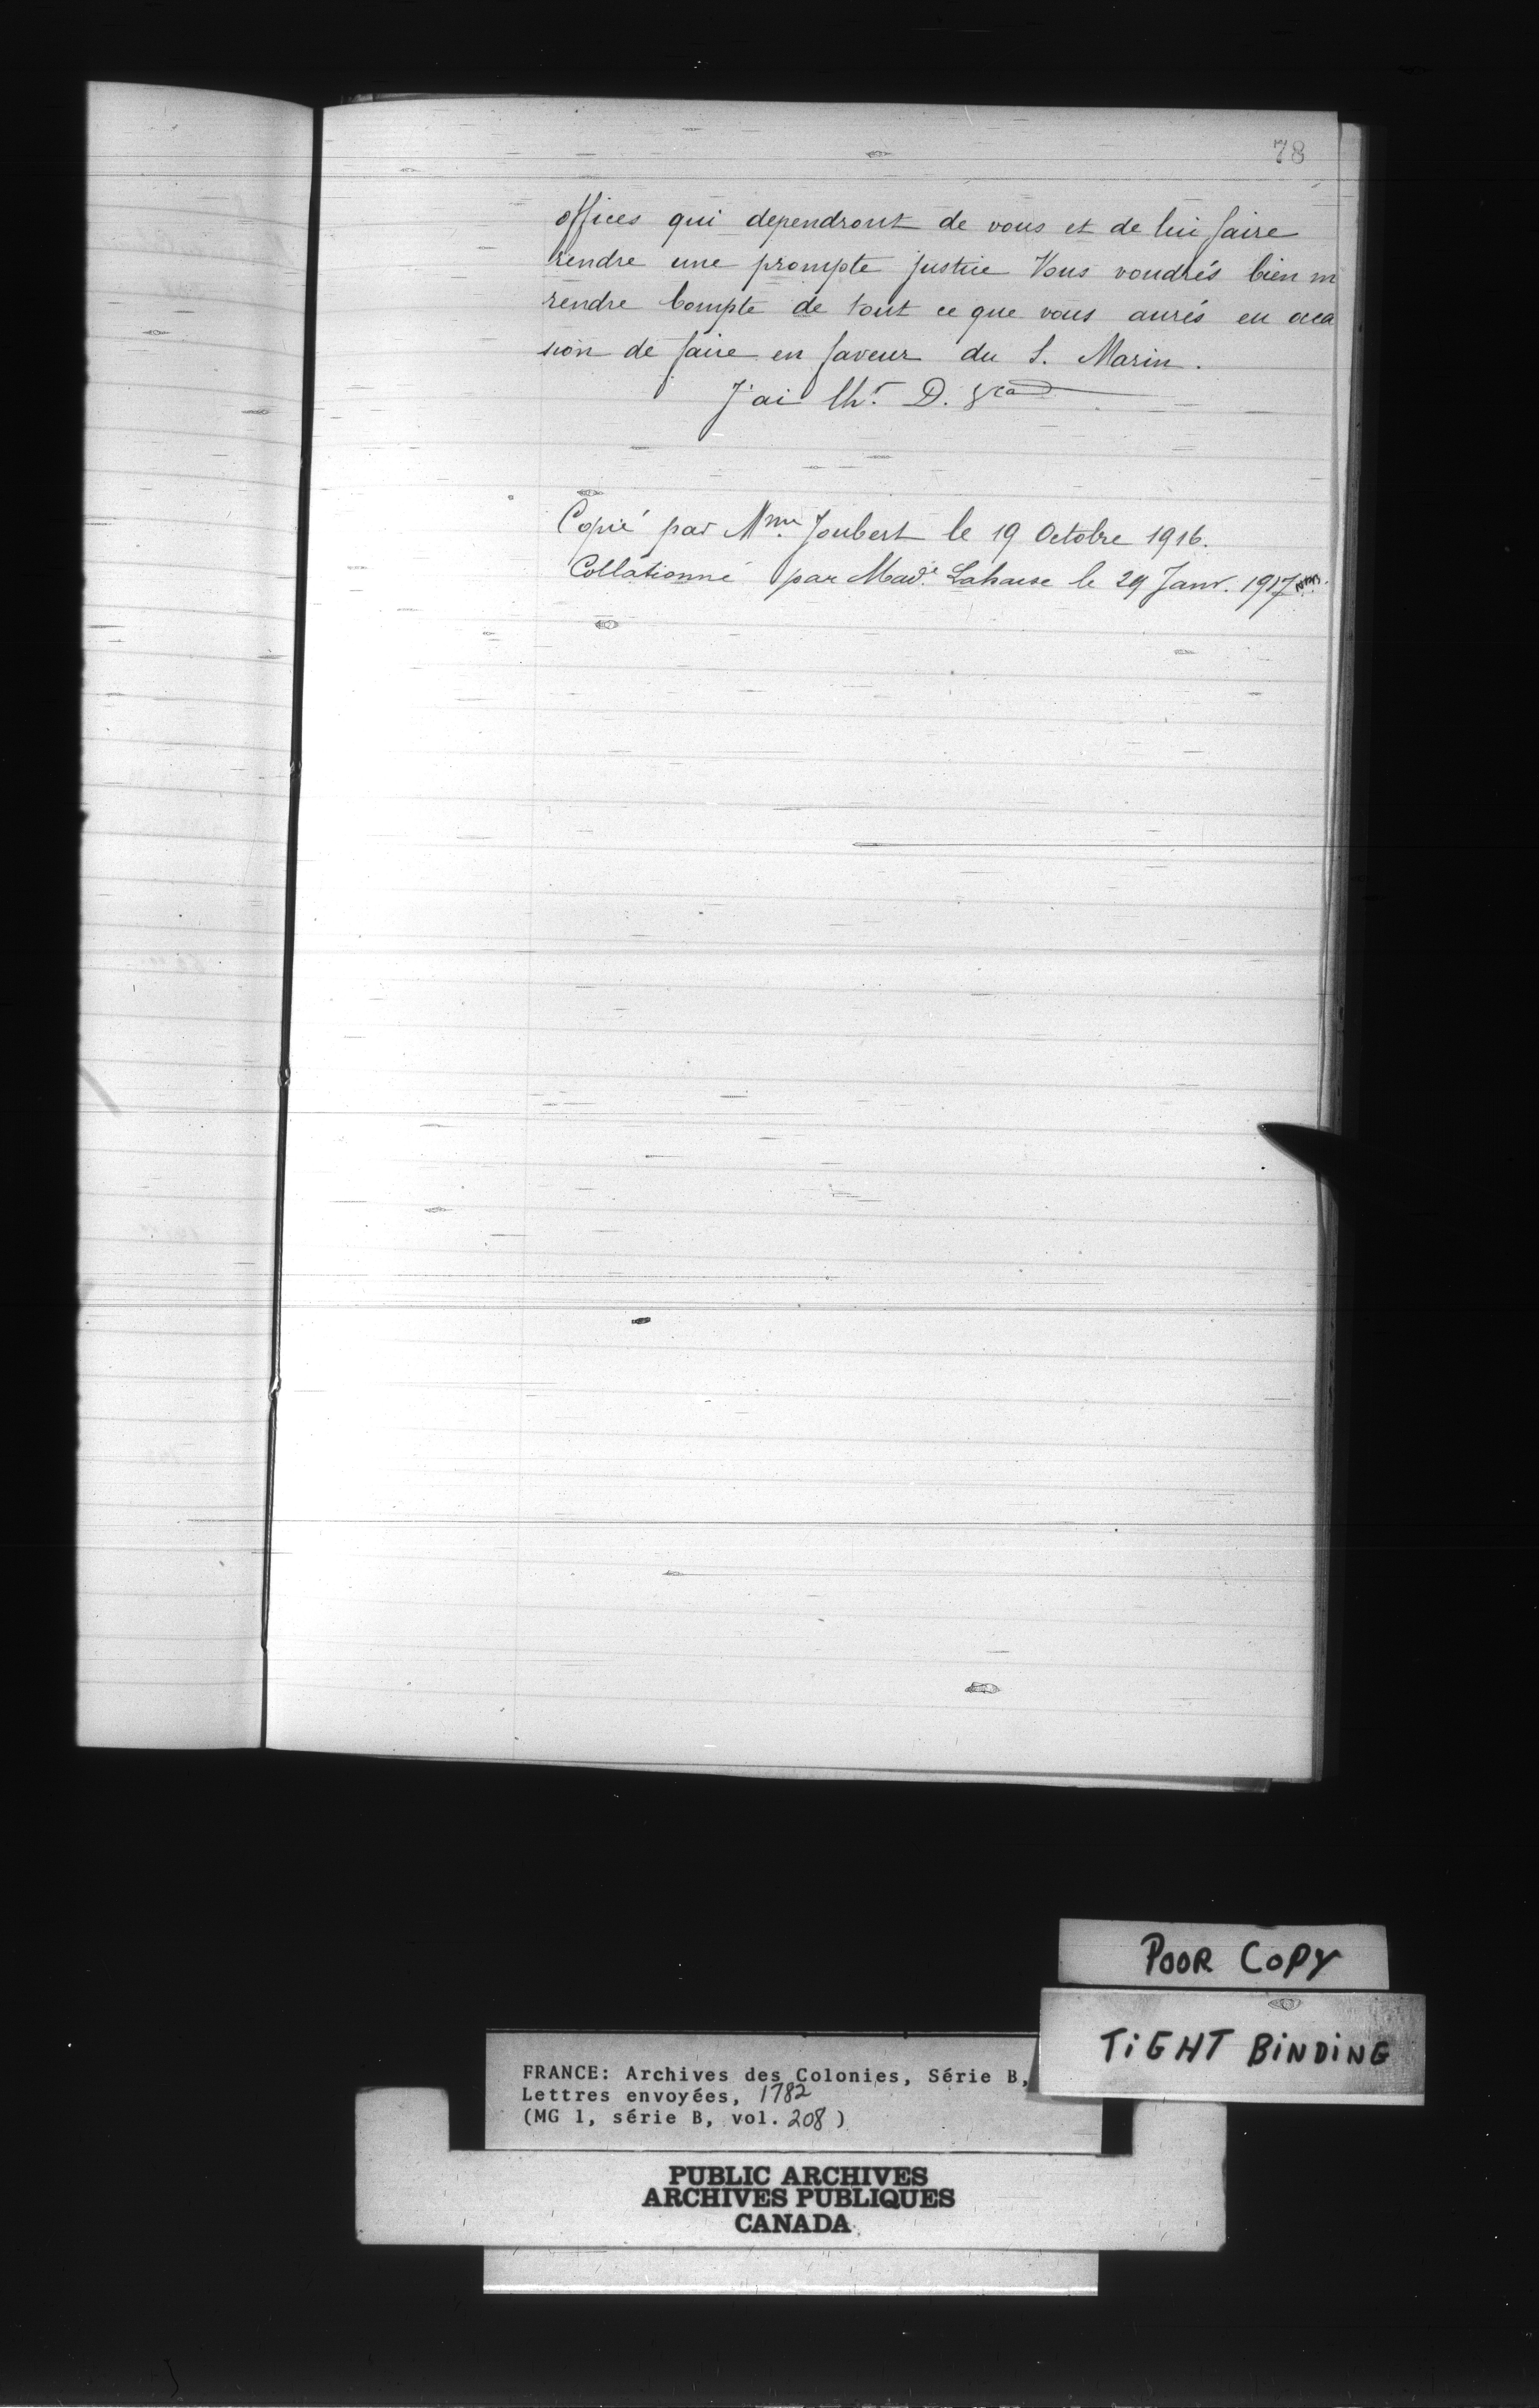 78
offices qui dependront de vous et de lui faire
rendre une prompte justice Vous voudrés bien m
rendre Compte de tout ce que vous aurés eu occa
sion de faire en faveur du S. Marin.
J'ai lh.r D. &ca
Copié par Mme. Joubert le 19 Octobre 1916.
Collationné par Mad.e Lahaise le 29 Janv. 1917
POOR COPY
TIGHT BINDING
FRANCE: Archives des Colonies, Série B,
Lettres envoyées, 1782
(MG 1, série B, vol. 208)
PUBLIC ARCHIVES
ARCHIVES PUBLIQUES
CANADA